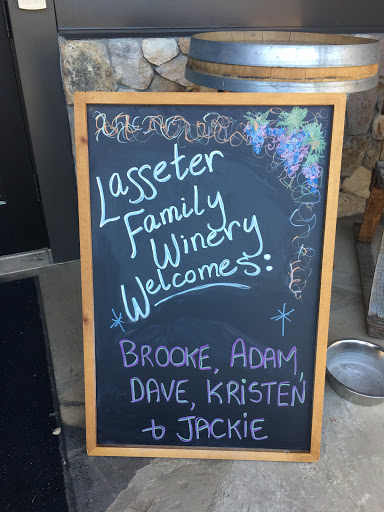 Lasseter
Family
Winery
Welcomes:
BROOKE, ADAM,
DAVE, KRISTEN
& JACKIE